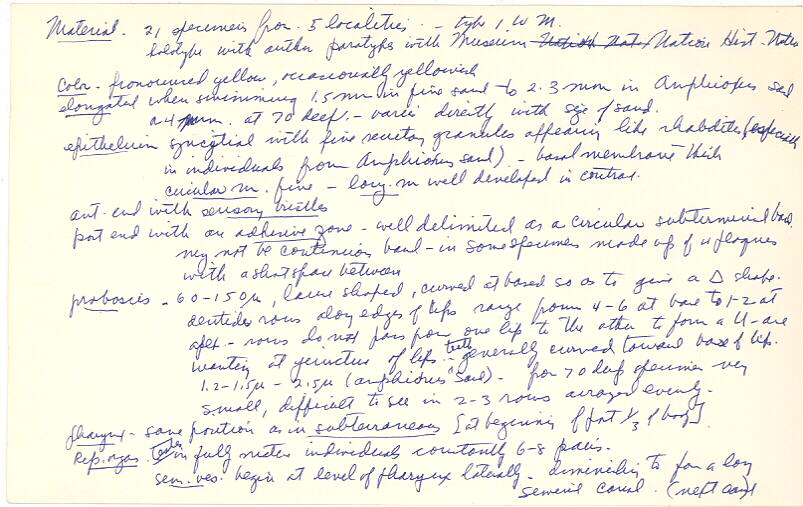 Material - 21 specimens from 5 localities. - type 1 W M.
holotype with author paratypes with Museum Nation Hist. Natur
Color - pronounced yellow, occasionally yellowish
elongated when swimming 1.5 mm in fine sand to 2.3 mm in Amphioxus sand
a 4 mm. at 70 deep. - varies directly with size of sand.
epithelium syncytial with fine secretory granules appearing like rhabdites (especially
in individuals from Amphioxus sand) - basal membrane thick
circular m. fine - long. m well developed in contrast.
ant. end with sensory bristles
post end with an adhesive zone - well delimited as a circular subterminal band.
may not be continuous band - in some specimens made up of 4 plaques
with a short space between
proboscis - 60-150µ, lance shaped, curved at based so as to give a Δ shape.
denticles rows along edges of lips range from 4-6 at base to 1-2 at
apex. - rows do not pass from one lip to the other to form a U - are
wanting at juncture of lips. - teeth generally curved toward base of lip.
1.2-1.5µ - 2.5µ (amphioxus sand). for 70 deep specimen very
small, difficult to see in 2-3 rows arranged evenly.
pharynx - same position as in subterraneous [at beginning of post 1/3 of body].
Rep. organ. testes in fully mature individuals constantly 6-8 pairs.
sem. ves. begin at level of pharynx laterally - diminishing to form a long
seminal canal. (next card)